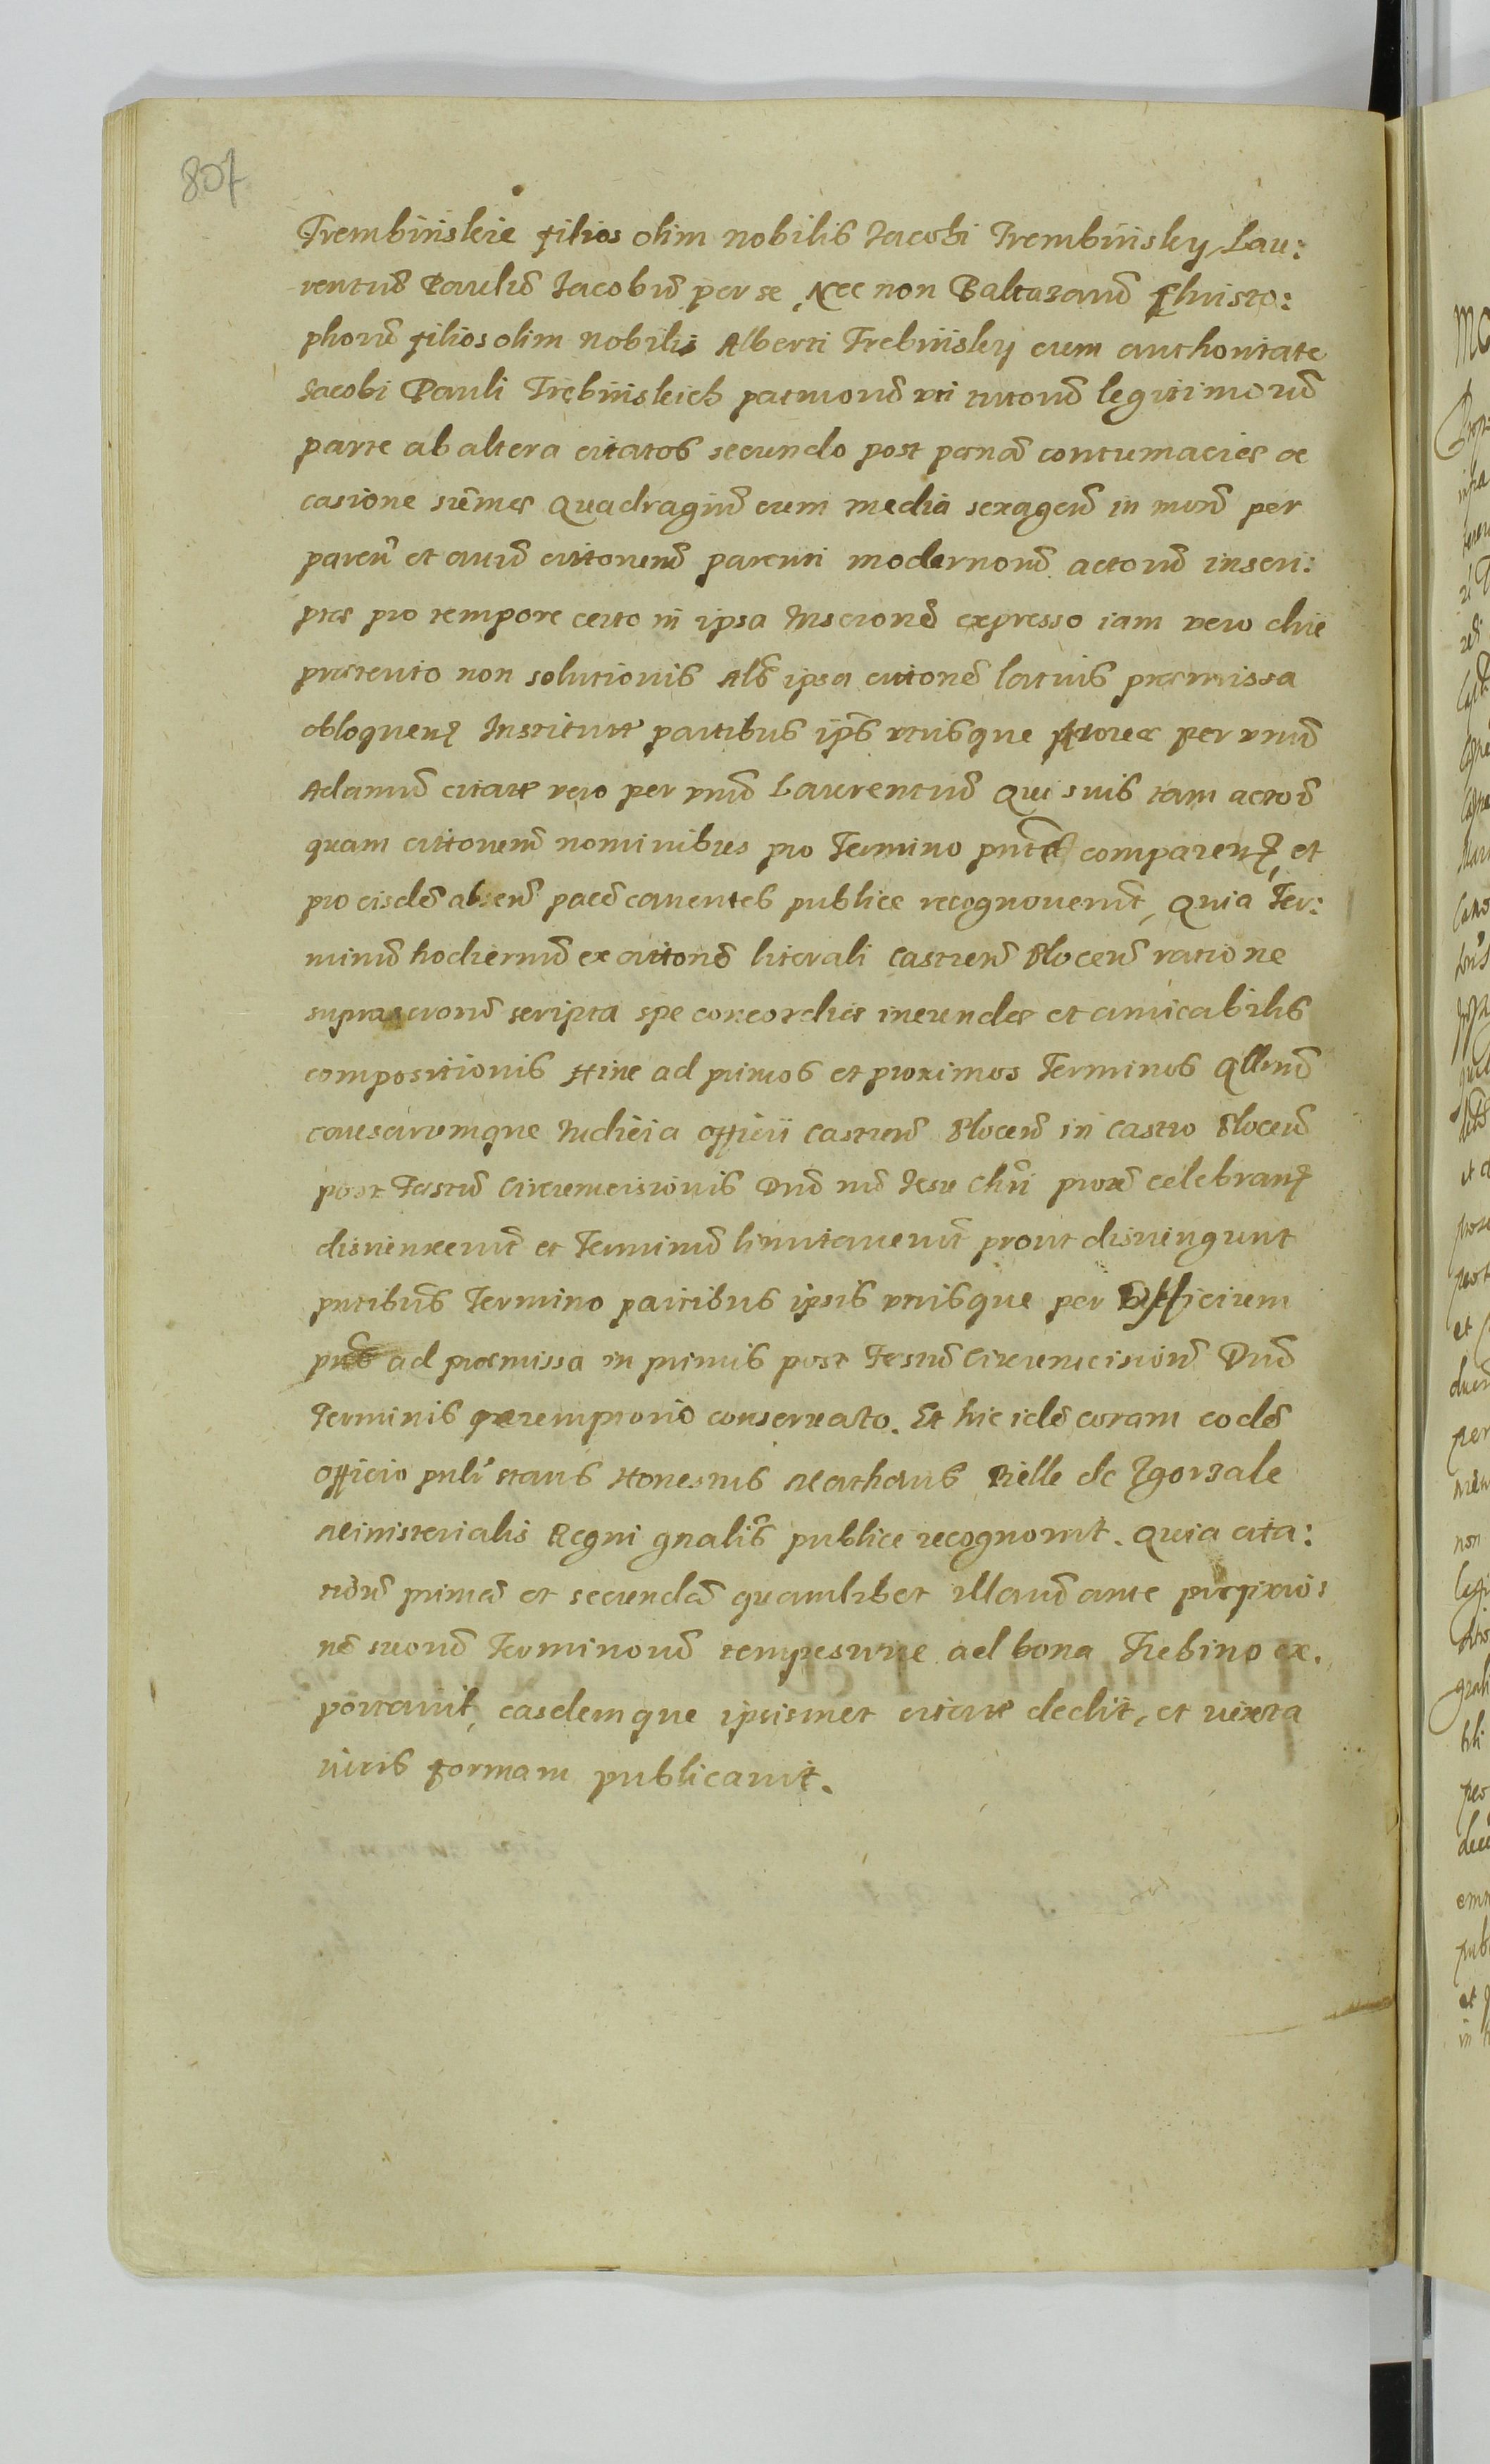 807
Trembińskie filios olim nobilis Jacobi Trembinsky, Lau:
rentiũ Paulũ Jacobũ per se, Nec non Baltazarũ Christo:
phorũ filios olim nobilis Alberti Trebinsky cum authoritate
Jacobi Pauli Trębinskich patruorũ uti tutorũ legitimorũ
parte ab altera citatos secundo post pœnã contumaciæ oc
casione sũmæ Quadragĩn cum media sexagen̄ in mon̄ per
paren̄ et auũ citatorum parenti modernorũ actorũ inscri:
ptæ pro tempore certo in ipsa Inscrone expresso iam vero die
præterito non solutionis ipsa citone latius præmissa
obloquen̄ Instituit partibus ip̄s utrisque Actorea per unũ
Adamũ citatæ vero per unũ Laurentiũ Qui suis tam actorũ
quam citatorum nominibus pro Termino comparen̄, et
pro eisdẽ absen̄ pacẽ cauentes publice recognouerũt, Quia Ter:
minũ hodiernũ ex citatone literali Castren̄ Plocen̄ ratione
scripta spe concordiæ ineundæ et amicabilis
compositionis Hinc ad primos et proximos Terminos Qllarũ
causarumque Judicia officii Castren̄ Plocen̄ in Castro Plocen̄
post Festũ Circumcisionis Dnĩ nrĩ Jesu Chrĩ prox̄ celebran̄
disiunxerũt et Terminũ limitauerũt prout disiungunt
pntibus Termino partibus ipsis utrisque per Officium
pñs ad præmissa in primis post Festũ Circumcision̄ Dnĩ
Terminis peremptoriẽ conseruato. Et hic idẽ coram eodẽ
officio stans Honestus Mathæus Bielle de Zgorzale
Ministerialis Regni gnalis publice recognouit. Quia cita:
tionũ primã et secundã quamlibet illarũ ante
nẽ suorũ Terminorũ tempestiue ad bona Trebino ex.
portauit, easdemque ipsismet citatæ dedit, et iuxta
iuris formam publicauit.